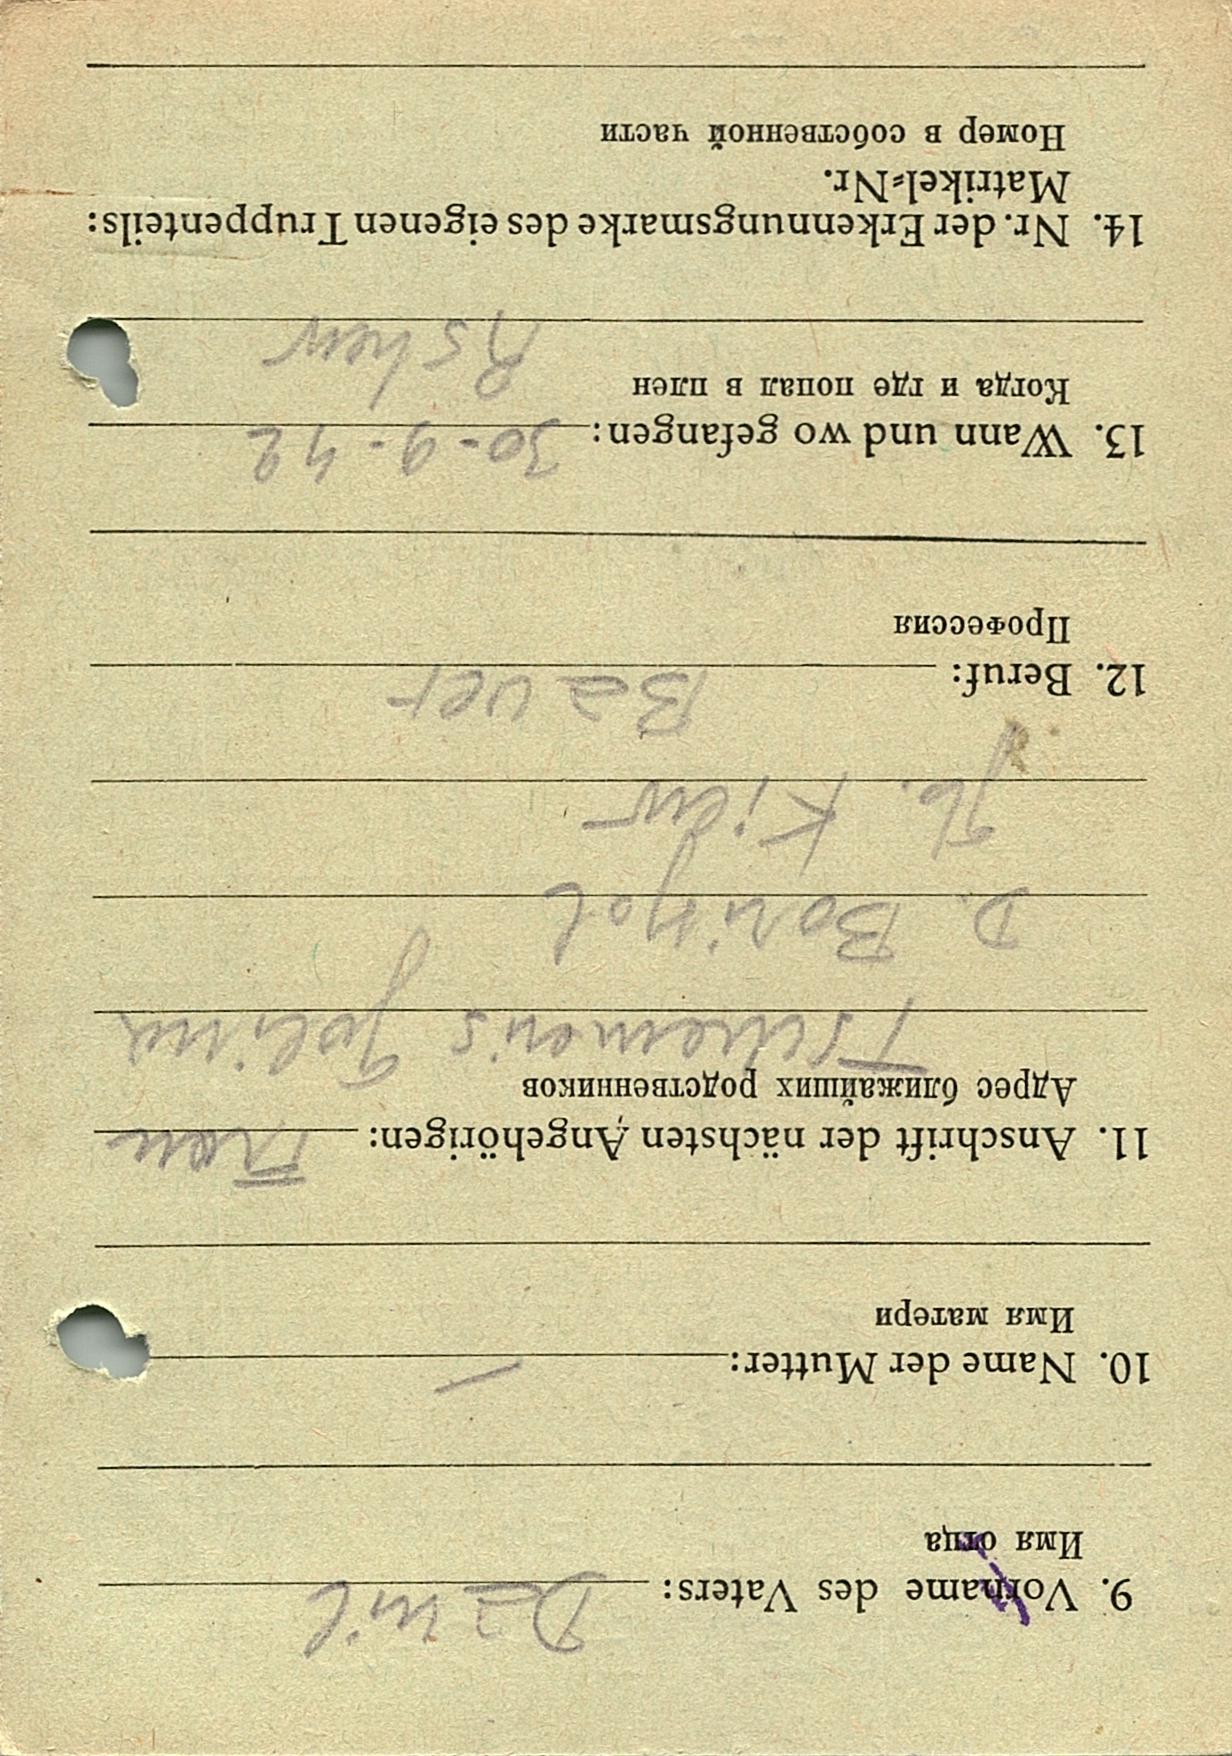 9. Vorname des Vaters: Danil
Имя отца
10. Name der Mutter: —
Имя матери
11. Anschrift der nächsten Angehörigen: Frau
Адрес ближайших родственников
D.
Kiew
12. Beruf: Bauer
Профессия
13. Wann und wo gefangen: 30-9-42
Когда и где попал в плен
Rshew
14. Nr. der Erkennungsmarke des eigenen Truppenteils:
Matrikel=Nr.
Номер в собственной части